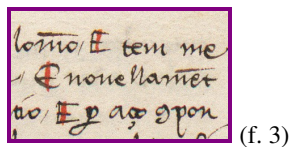 lom̄o, E tem me
E nouellam̄et
tio, E ꝑ aço ꝯpon
(f. 3)